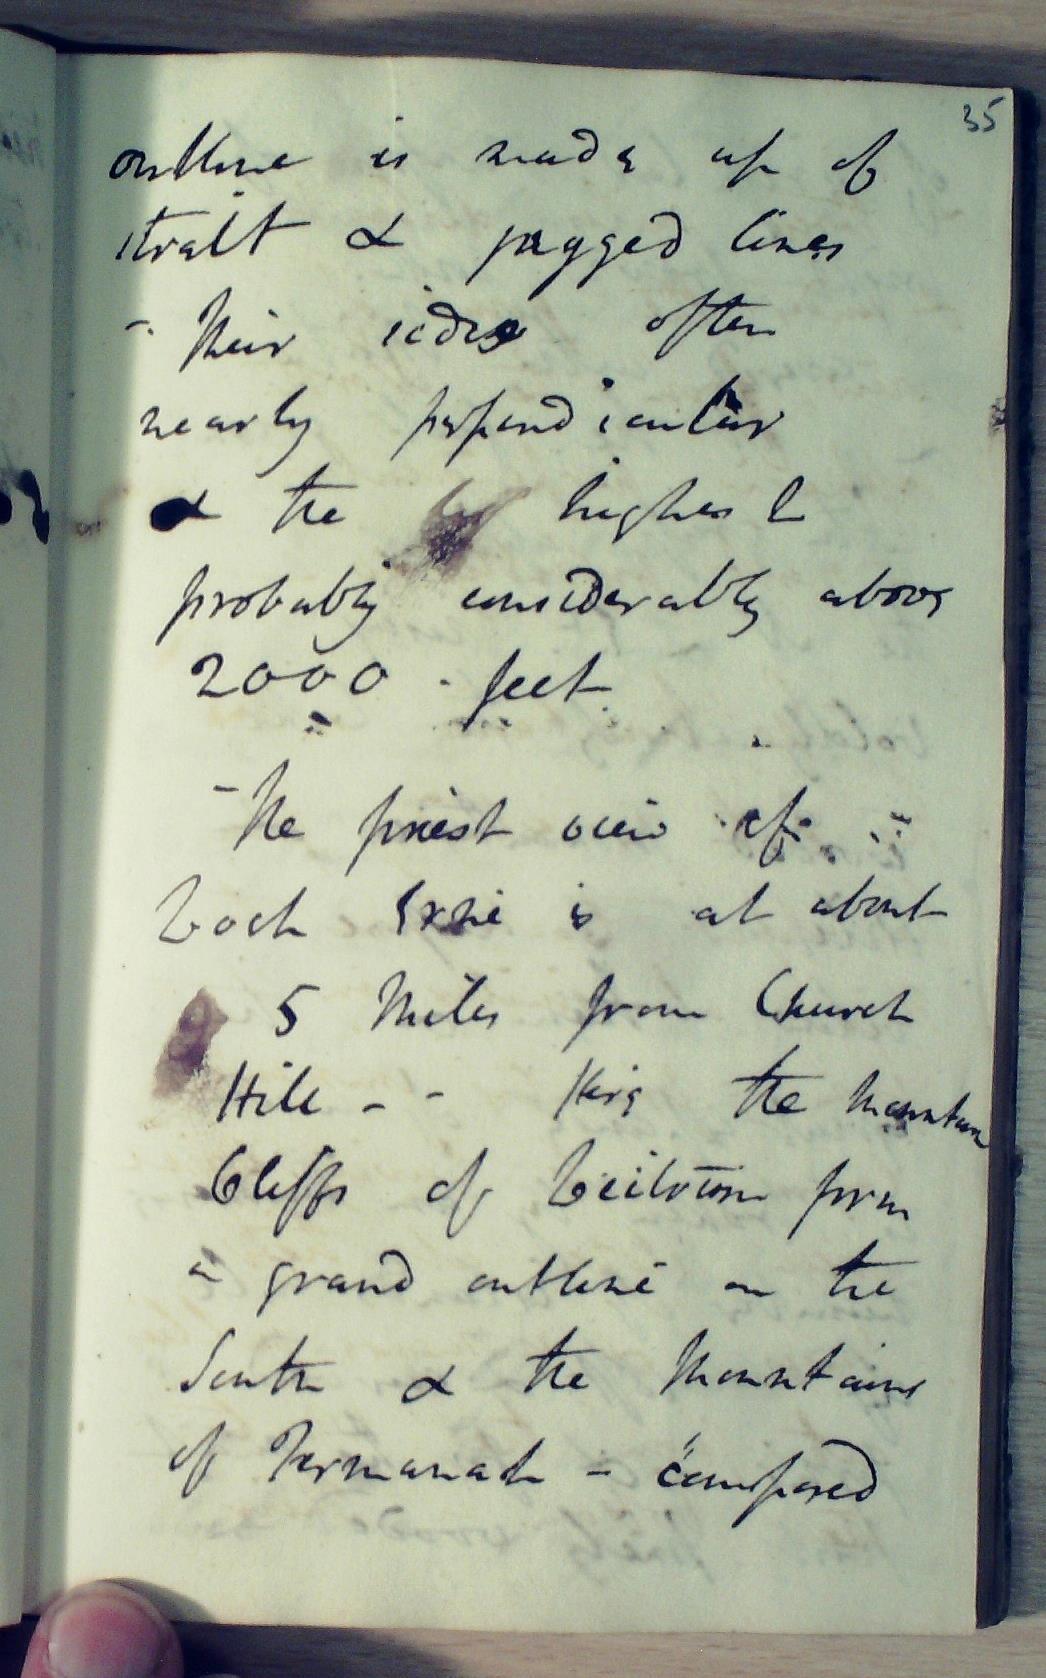 35
outline is made up of
strait & jagged lines
- Their sides often
nearly perpendicular
& the highest
probably considerably above
2000 . feet.
- The finest view of
Loch Erne is at about
5 Miles from Church
Hill - - Here the mountain
Cliffs of form
a grand outline on the
South & the Mountains
of Fermanah - composed